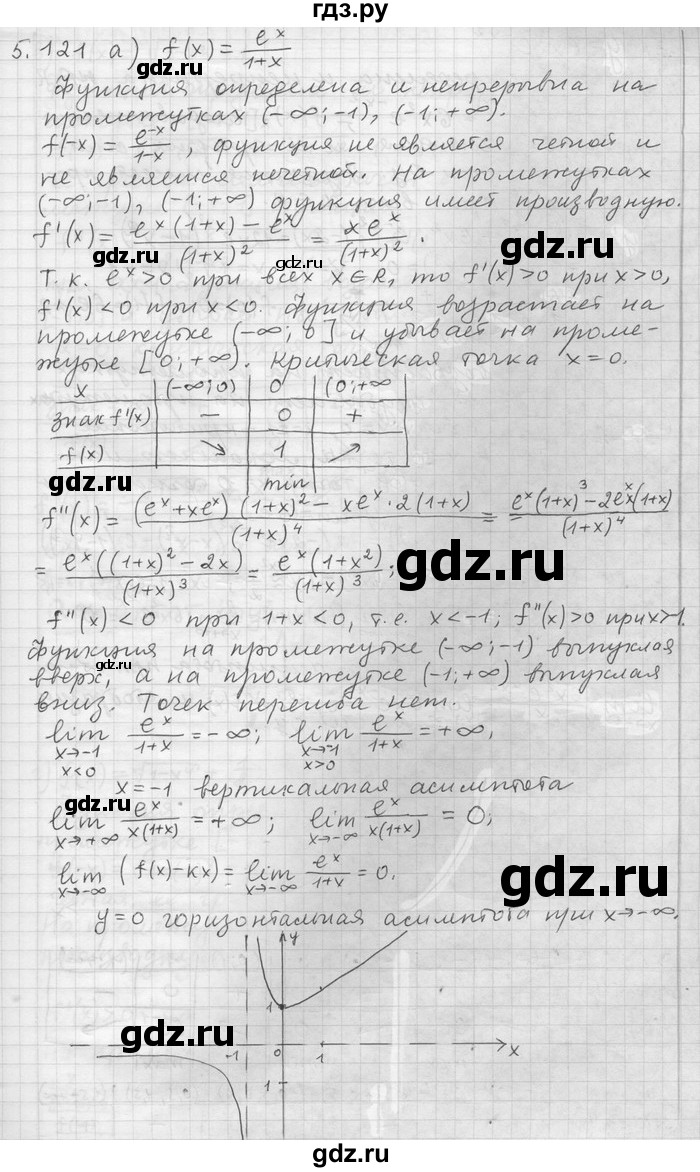 гдз.ру
5.121 а) f(x) = e^x/(1+x)
gdz.ru
Функция определена и непрерывна на
промежутках (-∞;-1), (-1;+∞).
gdz.ru
f(-x) = e^-x/(1-x), функция не является четной и
не является нечетной. На промежутках
(-∞;-1), (-1;+∞) функция имеет производную.
f'(x) = (e^x(1+x) - e^x)/(1+x)^2 = xe^x/(1+x)^2.
gdz.ru
gdz.ru
Т.к. e^x>0 при всех x∈R, то f'(x)>0 при x>0,
f'(x)<0 при x<0. Функция возрастает на
промежутке (-∞; 0] и убывает на проме-
жутке [0;+∞). Критическая точка x=0.
gdz.ru
x (-∞;0) 0 (0;+∞
знак f'(x) − 0 +
f(x) ↘ 1 ↗
min
gdz.ru
f''(x) = ((e^x+xe^x)(1+x)^2 - xe^x·2(1+x))/(1+x)^4 = (e^x(1+x)^3 - 2e^x x(1+x))/(1+x)^4
= e^x((1+x)^2-2x)/(1+x)^3 = e^x(1+x^2)/(1+x)^3;
gdz.ru
f''(x)<0 при 1+x<0, т.е. x<-1; f''(x)>0 при x>-1.
Функция на промежутке (-∞;-1) выпуклая
gdz.ru
вверх, а на промежутке (-1;+∞) выпуклая
вниз. Точек перегиба нет.
gdz.ru
lim x→-1 x<0 e^x/(1+x) = -∞; lim x→-1 x>0 e^x/(1+x) = +∞,
x=-1 вертикальная асимптота
gdz.ru
lim x→+∞ e^x/(x(1+x)) = +∞; lim x→-∞ e^x/(x(1+x)) = 0;
gdz.ru
lim x→-∞ (f(x)-kx) = lim x→-∞ e^x/(1+x) = 0.
y=0 горизонтальная асимптота при x→-∞.
y
1
gdz.ru
gdz.ru
-1 0 1 x
1
гдз.ру